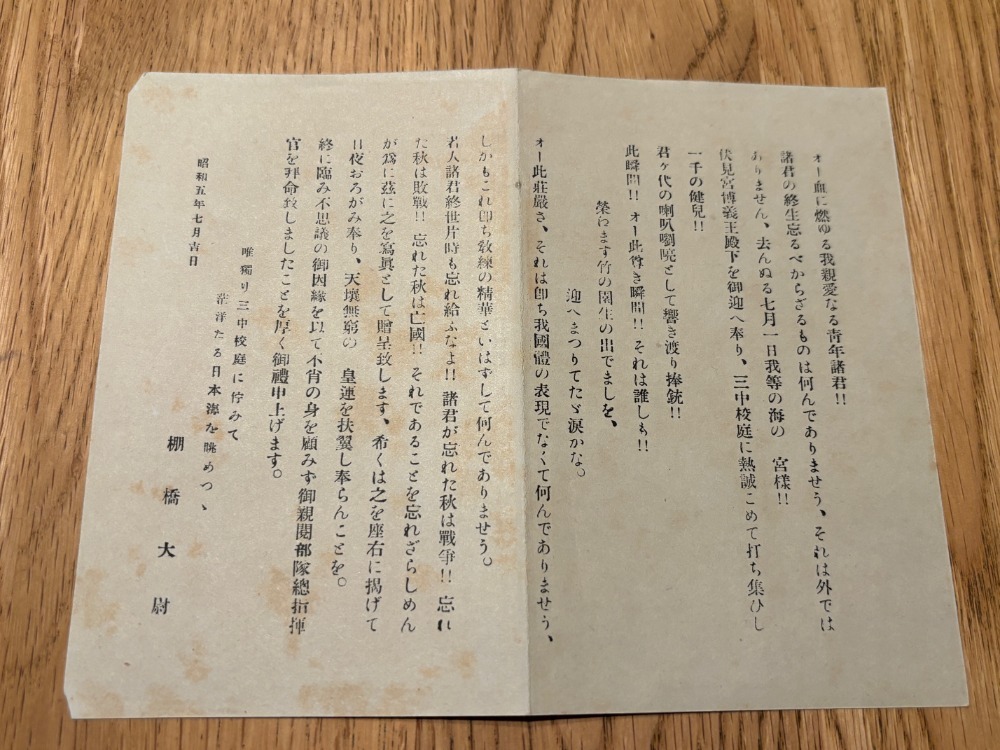 オー血に燃ゆる我親愛なる靑年諸君!!
諸君の終生忘るべからざるものは何んでありませう、それは外では
ありません、去んぬる七月一日我等の海の　宮樣!!
伏見宮博義王殿下を御迎へ奉り、三中校庭に熱誠こめて打ち集ひし
一千の健兒!!
君ヶ代の喇叭劉喨として響き渡り捧銃!!
此瞬間!! オー此尊き瞬間!! それは誰しも!!
榮ゆます竹の園生の出でましを、
迎へまつりてたゞ淚かな。
オー此莊嚴さ、それは卽ち我國體の表現でなくて何んでありませう、
しかもこれ卽ち敎練の精華といはずして何んでありませう。
若人諸君終世片時も忘れ給ふなよ!! 諸君が忘れた秋は戰爭!! 忘れ
た秋は敗戰!! 忘れた秋は亡國!! それであることを忘れざらしめん
が爲に玆に之を寫眞として贈呈致します、希くは之を座右に揭げて
日夜おろがみ奉り、天壤無窮の　皇運を扶翼し奉らんことを。
終に臨み不思議の御因緣を以て不肖の身を顧みず御親閱部隊總指揮
官を拜命致しましたことを厚く御禮申上げます。
唯獨り三中校庭に佇みて
茫洋たる日本海を眺めつゝ
昭和五年七月吉日
棚橋大尉